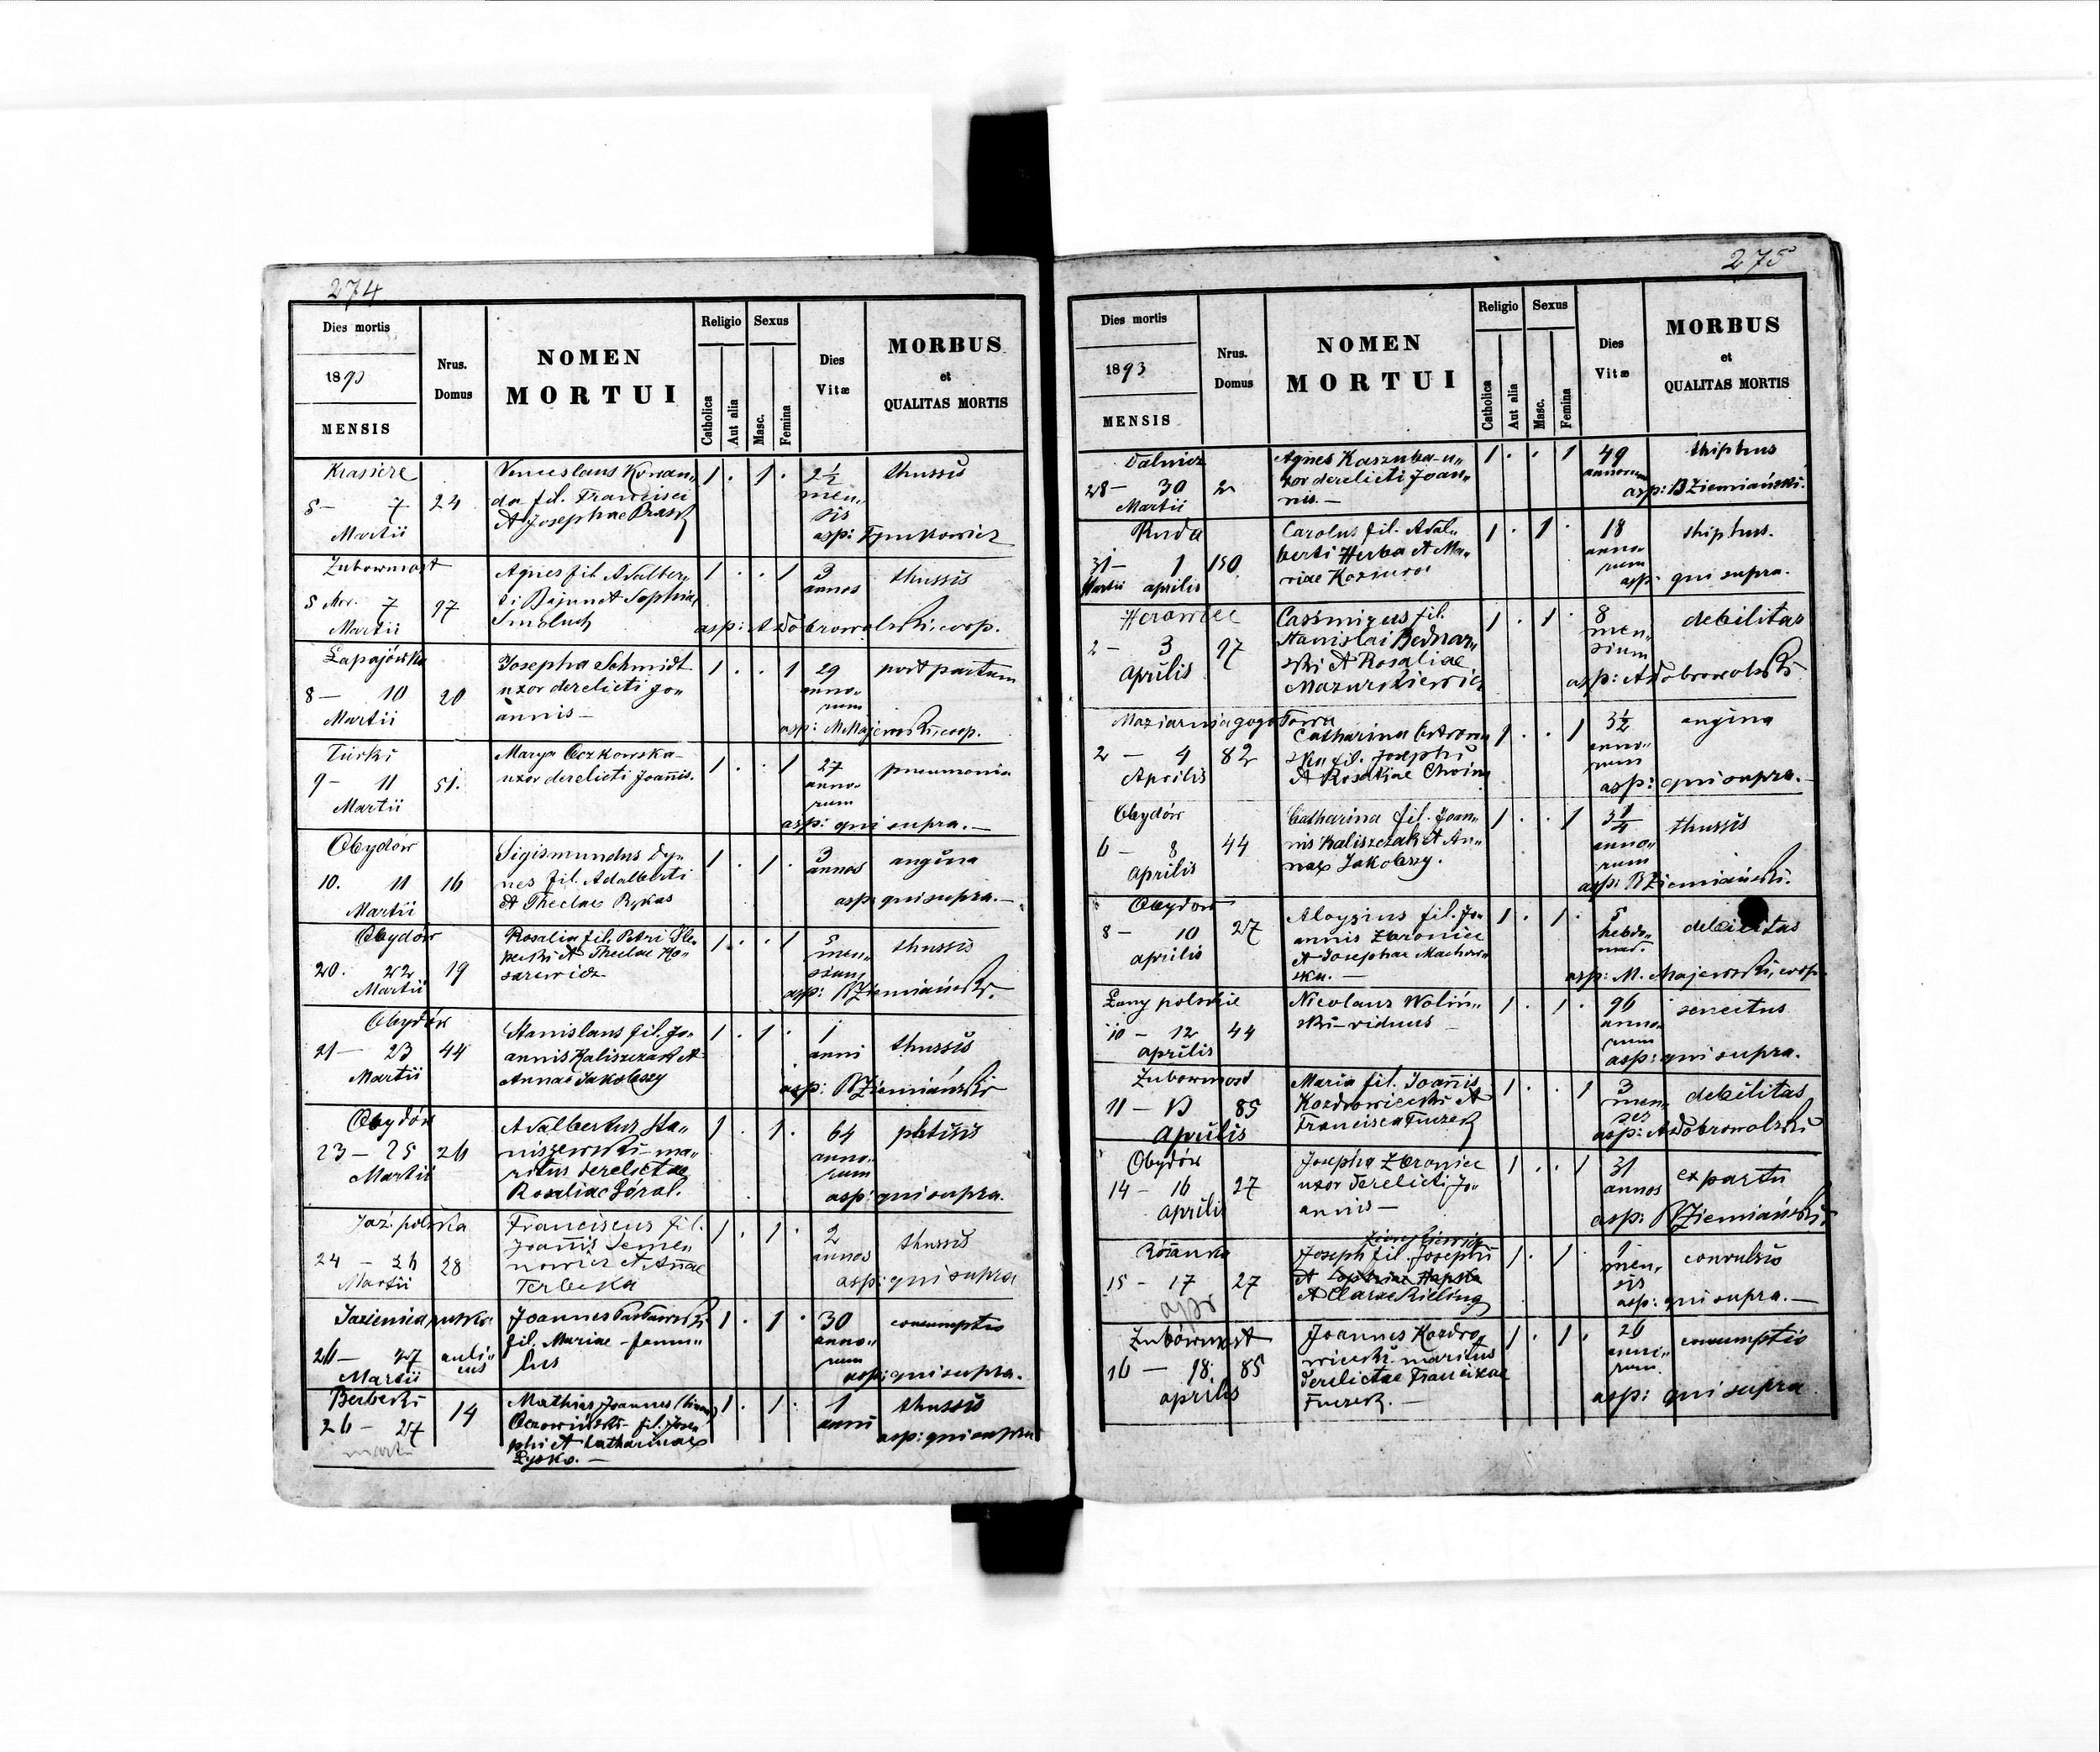 274
Dies mortis
1893
MENSIS
Nrus.
Domus
NOMEN
MORTUI
Religio
Catholica
Aut alia
Sexus
Masc.
Femina
Dies
Vitæ
MORBUS
et
QUALITAS MORTIS
Krasice
5 – 7
Martii
24
Venceslaus Konan„
da fil. Francisci
et Josephae
1 . 1 .
2½
men„
sis
thussis
asp:
Zubowmost
5 Mar. 7
Martii
97
Agnes fil Adalber„
ti et Sophiae
1 . . 1
3
annos
thussis
asp: A Dobrowolski, coop.
Łapajówka
8 – 10
Martii
20
Josepha Schmidt
uxor derelicti Jo„
annis –
1 . . 1
29
anno„
rum
post partum
asp: M Majewski, coop.
Turki
9 – 11
Martii
51.
Marya Oczkowska –
uxor derelicti Joañis.
1 . . 1
27
anno„
rum
pneumonia
asp: qui supra. –
Obydów
10. 11
Martii
16
Sigismundus Dy„
nes fil. Adalberti
et Theclae Rykas
1 . 1 .
3
annos
angina
asp: qui supra. –
Obydów
20. 22
Martii
19
Rosalia fil. Petri
et Theclae Ko„
sarewicz
1 . . 1
5
men„
sium
thussis
asp: B Ziemiański.
Obydów
21 – 23
Martii
44
Stanislaus fil. Jo„
annis Kaliszczak et
Annae Jakobszy
1 . 1 .
1
anni
thussis
asp: B Ziemiański
Obydów
23 – 25
Martii
26
Adalbertus Sta„
niszewski – ma„
ritus derelictae
Rosaliae Góral.
1 . 1 .
64
anno„
rum
phtisis
asp: qui supra.
Jaź. polska
24 – 26
Martii
28
Franciscus fil.
Joañis Seme„
nowicz et Añae
Terbecka
1 . 1 .
2
annos
thussis
asp: qui supra
Jazienica ruska
26 – 27
Martii
auli„
cus
Joannes
fil. Mariae – famu„
lus
1 . 1 .
30
anno„
rum
consumptio
asp: qui supra.
Berbeki
26 – 27
mart.
14
Mathias Joannes
fil. Jose„
phi et Catharinae
Łysko. –
1 . 1 .
1
anni
thussis
asp: qui supra
275
Dies mortis
1893
MENSIS
Nrus.
Domus
NOMEN
MORTUI
Religio
Catholica
Aut alia
Sexus
Masc.
Femina
Dies
Vitæ
MORBUS
et
QUALITAS MORTIS
Dalnicz
28 – 30
Martii
2
Agnes Kaszuba – u„
xor derelicti Joan„
nis. –
1 . . 1
49
annorum
thiphus
asp: B Ziemiański.
Ruda
31 – 1
Martii aprilis
150
Carolus fil. Adal„
berti Herba et Ma„
riae Koziura
1 . 1 .
18
anno„
rum
thiphus.
asp: qui supra.
2 – 3
Aprilis
97
Casimirus fil.
Stanislai Bednar„
ski et Rosaliae
Mazurkiewicz
1 . 1 .
8
men„
sium
debilitas
asp: A Dobrowolski
2 – 4
Aprilis
82
Catharina
ska fil. Josephi
et Rosaliae
1 . . 1
3½
anno„
rum
angina
asp: qui supra. –
Obydów
6 – 8
aprilis
44
Catharina fil. Joan„
nis Kaliszczak et An„
nae Jakobszy.
1 . . 1
3¼
anno„
rum
thussis
asp: B Ziemiański.
Obydów
8 – 10
aprilis
27
Aloysius fil. Jo„
annis Zbroniec
et Josephae Machow„
ska. –
1 . 1 .
5
hebdo„
mad.
debilitas
asp: M. Majewski, coop.
Łany polskie
10 – 12
aprilis
44
Nicolaus Woliń„
ski – viduus –
1 . 1 .
96
anno„
rum
senectus
asp: qui supra.
Zubowmost
11 – 13
Aprilis
85
Maria fil. Joañis
Kozdrowiecki et
Francisca Fuczek
1 . . 1
3
men„
ses
debilitas
asp: A Dobrowolski
Obydów
14 – 16
aprilis
27
Josepha Zbroniec
uxor derelicti Jo„
annis –
1 . . 1
31
annos
ex partu
asp: B Ziemiański
Różanka
15 – 17
apr
27
Joseph fil. Josephi
et Clarae Kieling
1 . 1 .
1
men„
sis
convulsio
asp: qui supra. –
Zubówmost
16 – 18.
aprilis
85
Joannes Kozdro„
wiecki. maritus
derelictae Franciscae
Fuczek. –
1 . 1 .
26
anno„
rum
consumptio
asp: qui supra